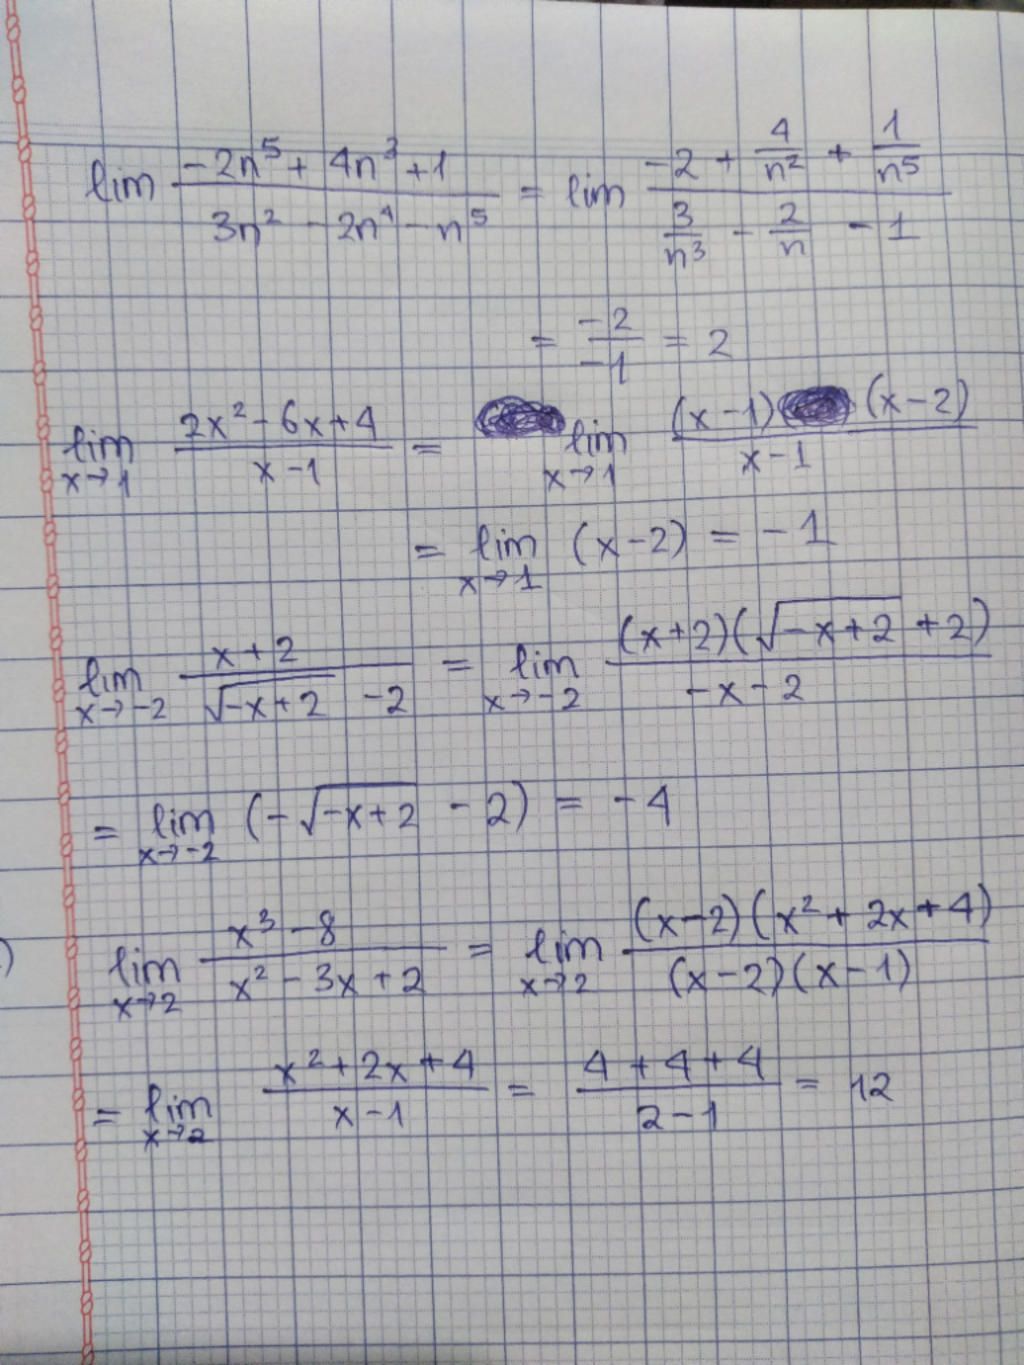 lim (-2n⁵ + 4n³ + 1)/(3n² - 2n⁴ - n⁵) = lim (-2 + 4/n² + 1/n⁵)/(3/n³ - 2/n - 1)
= -2/-1 = 2
lim x→1 (2x² - 6x + 4)/(x - 1) = lim x→1 (x - 1)(x - 2)/(x - 1)
= lim x→1 (x - 2) = -1
lim x→-2 (x + 2)/(√(-x + 2) - 2) = lim x→-2 (x + 2)(√(-x + 2) + 2)/(-x - 2)
= lim x→-2 (-√(-x + 2) - 2) = -4
) lim x→2 (x³ - 8)/(x² - 3x + 2) = lim x→2 (x - 2)(x² + 2x + 4)/((x - 2)(x - 1))
= lim x→2 (x² + 2x + 4)/(x - 1) = (4 + 4 + 4)/(2 - 1) = 12